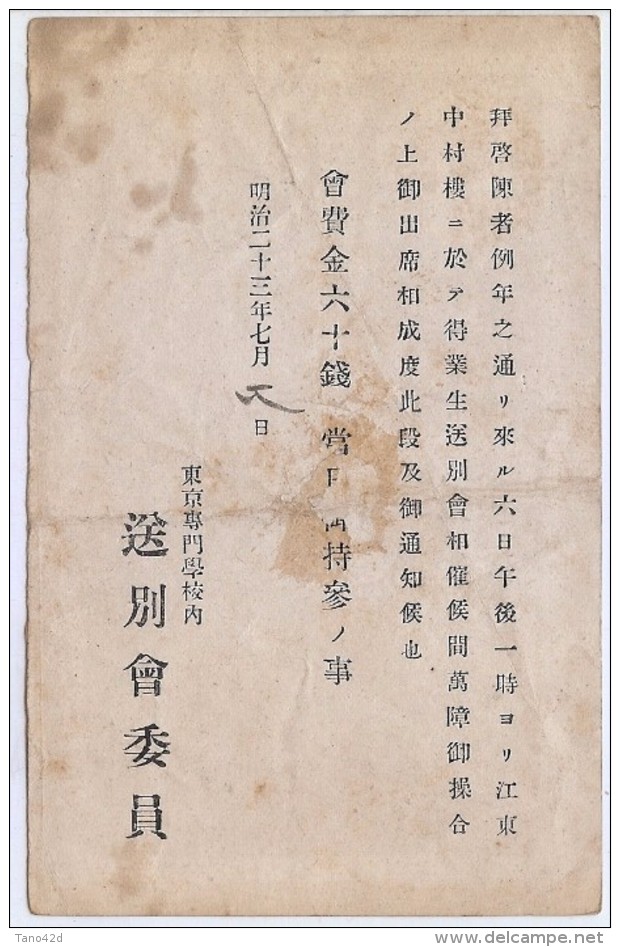 拜啓陳者例年之通リ來ル六日午後一時ヨリ江東
中村樓ニ於テ得業生送別會相催候間萬障御操合
ノ上御出席相成度此段及御通知候也
會費金六十錢 當日 持參ノ事
明治二十三年七月 日
東京專門學校內
送別會委員
Tano42d
www.delcampe.net